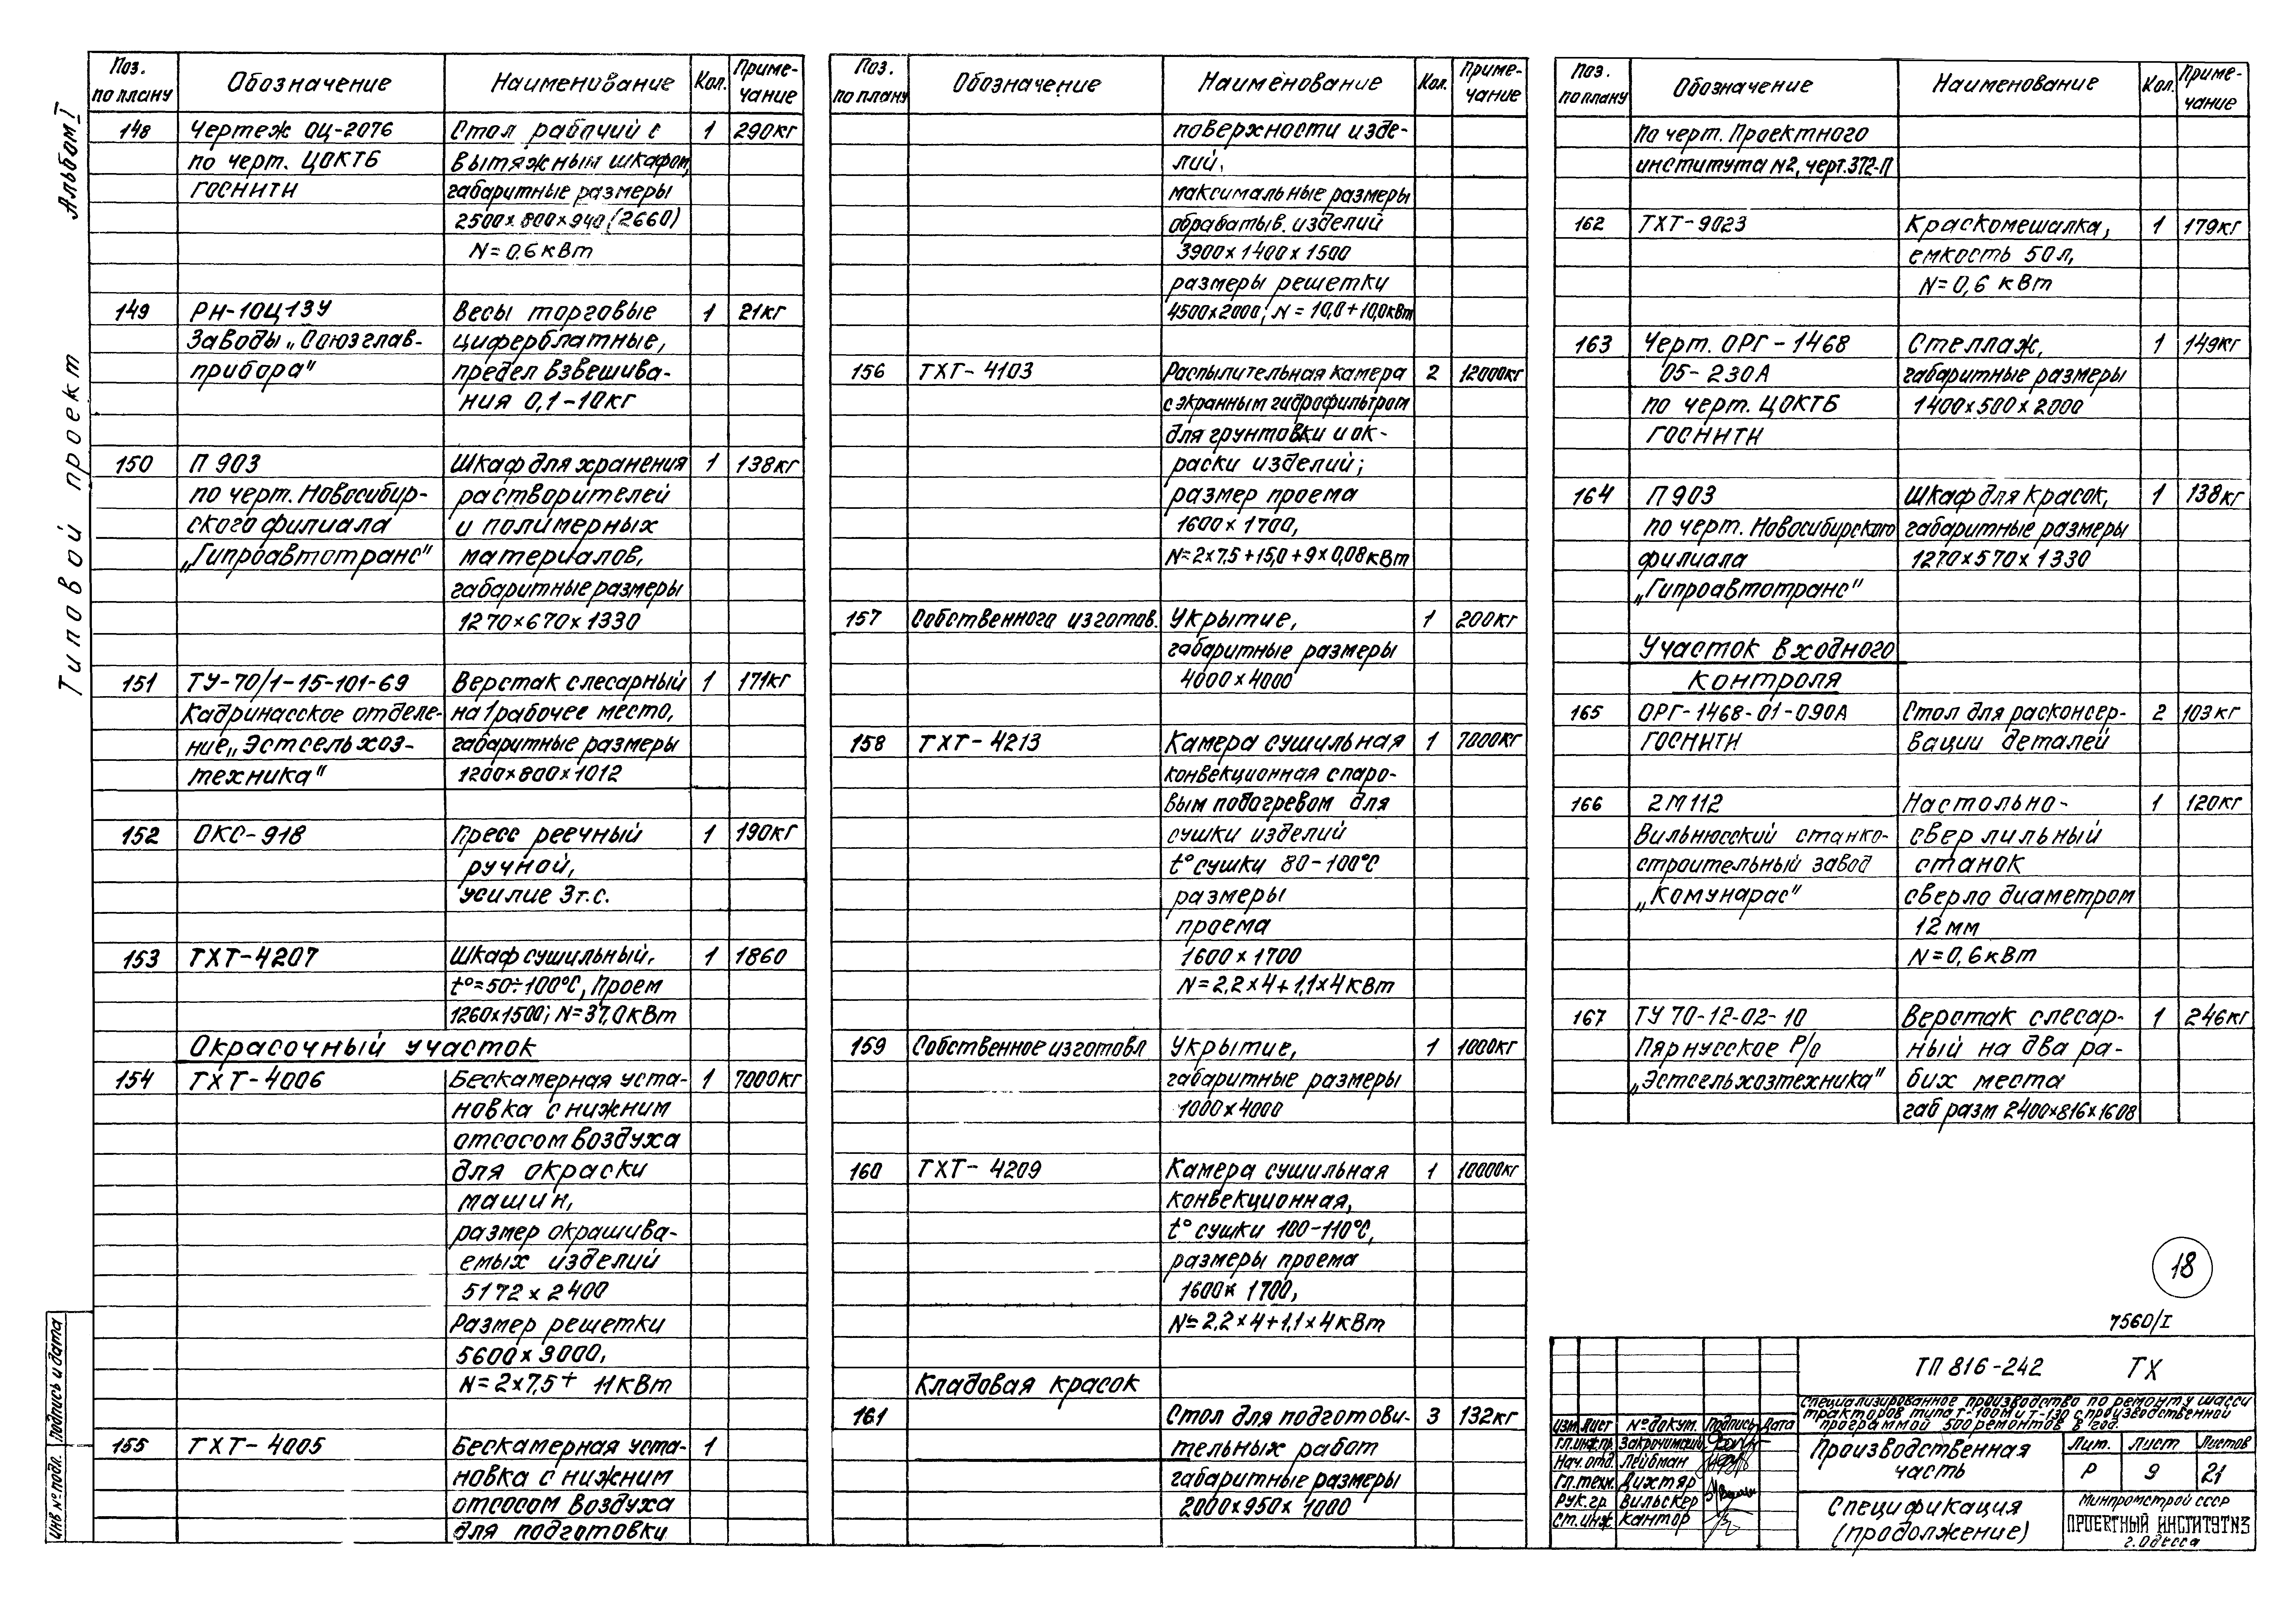 Альбом I
Типовой проект
Поз. по плану Обозначение Наименование Кол. Приме-чание
148 Чертеж ОЦ-2076 Стол рабочий с 1 290кг
по черт. ЦОКТБ вытяжным шкафом,
ГОСНИТИ габаритные размеры
2500×800×940 (2660)
N=0.6 кВт
149 РН-10Ц13У Весы торговые 1 21кг
Заводы „Союзглав- циферблатные,
прибора" предел взвешива-
ния 0,1-10кг
150 П 903 Шкаф для хранения 1 138кг
по черт. Новосибир- растворителей
ского филиала и полимерных
„Гипроавтотранс" материалов,
габаритные размеры
1270×670×1330
151 ТУ-70/1-15-101-69 Верстак слесарный 1 171кг
Кадринасское отделе- на 1 рабочее место,
ние „Эстсельхоз- габаритные размеры
техника" 1200×800×1012
152 ОКС-918 Пресс реечный 1 190кг
ручной,
усилие 3т.с.
153 ТХТ-4207 Шкаф сушильный, 1 1860
t°=50÷100°С, Проем
1260×1500; N=37,0кВт
Окрасочный участок
154 ТХТ-4006 Бескамерная уста- 1 7000кг
новка с нижним
отсосом воздуха
для окраски
машин,
размер окрашива-
емых изделий
5172×2400
Размер решетки
5600×3000,
N=2×7,5+ 11кВт
155 ТХТ-4005 Бескамерная уста- 1
новка с нижним
отсосом воздуха
для подготовки
Поз. по плану Обозначение Наименование Кол. Приме-чание
поверхности изде-
лий.
максимальные размеры
обрабатыв. изделий
3900×1400×1500
размеры решетки
4500×2000; N=10,0+10,0кВт
156 ТХТ-4103 Распылительная камера 2 12000кг
с экранным гидрофильтром
для грунтовки и ок-
раски изделий;
размер проема
1600×1700,
N=2×7,5+15,0+9×0,08кВт
157 Собственного изготов. Укрытие, 1 200кг
габаритные размеры
4000×4000
158 ТХТ-4213 Камера сушильная 1 7000кг
конвекционная с паро-
вым подогревом для
сушки изделий
t° сушки 80-100°С
размеры
проема
1600×1700
N=2,2×4+1,1×4кВт
159 Собственное изготовл Укрытие, 1 1000кг
габаритные размеры
1000×4000
160 ТХТ-4209 Камера сушильная 1 10000кг
конвекционная,
t° сушки 100-110°С,
размеры проема
1600× 1700,
N=2,2×4+1,1×4кВт
Кладовая красок
161 Стол для подготови- 3 132кг
тельных работ
габаритные размеры
2000×950×1000
Поз. по плану Обозначение Наименование Кол. Приме-чание
По черт. Проектного
института №2, черт.372-П
162 ТХТ-9023 Краскомешалка, 1 179кг
емкость 50л,
N=0,6 кВт
163 Черт. ОРГ-1468 Стеллаж, 1 149кг
05-230А габаритные размеры
по черт. ЦОКТБ 1400×500×2000
ГОСНИТИ
164 П903 Шкаф для красок, 1 138кг
по черт. Новосибирского габаритные размеры
филиала 1270×570×1330
„Гипроавтотранс"
Участок входного
контроля
165 ОРГ-1468-01-090А Стол для расконсер- 2 103кг
ГОСНИТИ вации деталей
166 2М112 Настольно- 1 120кг
Вильнюсский станко- сверлильный
строительный завод станок
„Комунарас" сверло диаметром
12мм
N=0,6кВт
167 ТУ 70-12-02-10 Верстак слесар- 1 246кг
Пярнусское Р/о ный на два ра-
„Эстсельхозтехника" бих места
габ разм 2400×816×1608
18
7560/I
ТП 816-242 ТХ
Специализированное производство по ремонту шасси
тракторов типа Т-100М и Т-130 с производственной
программой 500 ремонтов в год.
Изм Лист № докум. Подпись Дата
Гл.инж.пр. Закрочимский
Нач.отд. Лейбман
Гл.техн. Дихтяр
Рук.гр. Вильскер
Ст.инж Кантор
Производственная часть
Лит. Лист Листов
Р 9 21
Спецификация
(продолжение)
Минпромстрой СССР
ПРОЕКТНЫЙ ИНСТИТУТ№3
г.Одесса
Подпись и дата
Инв № подл.